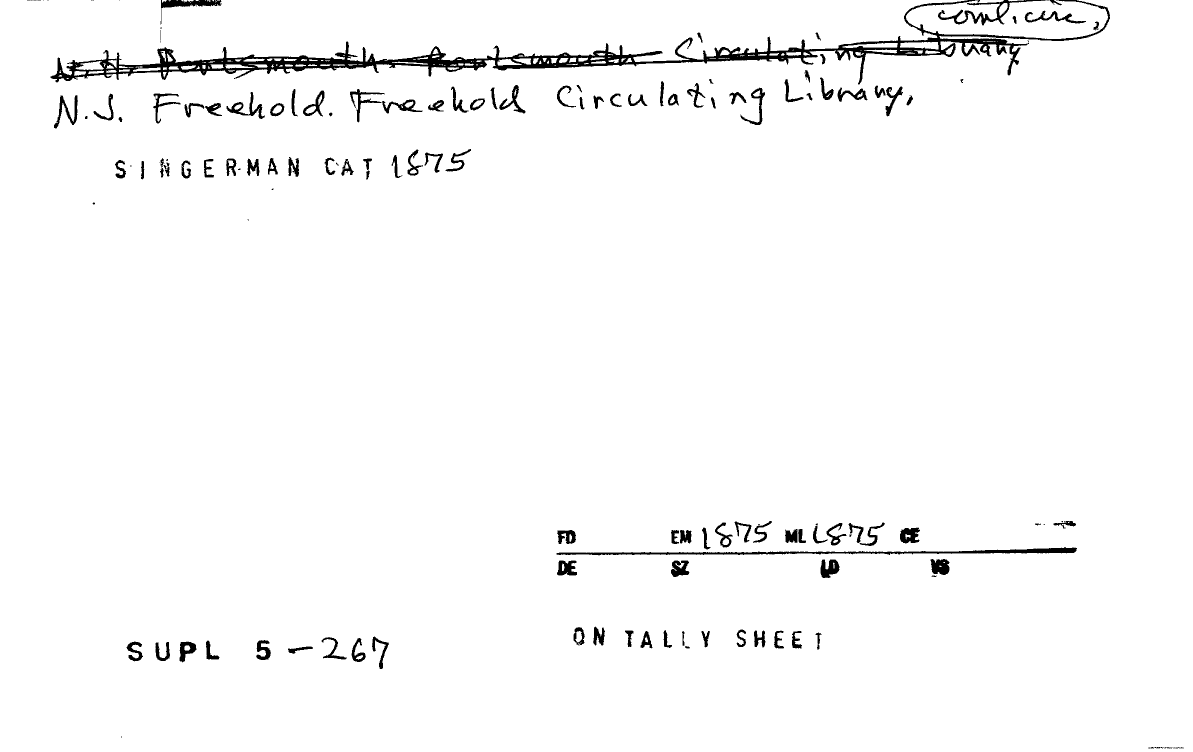 coml. circ,
N.H. Portsmouth. Portsmouth Circulating Library
N.J. Freehold. Freehold Circulating Library,
SINGERMAN CAT 1875
FD EM 1875 ML 1875 CE
DE SZ LD VS
SUPL 5-267 ON TALLY SHEET